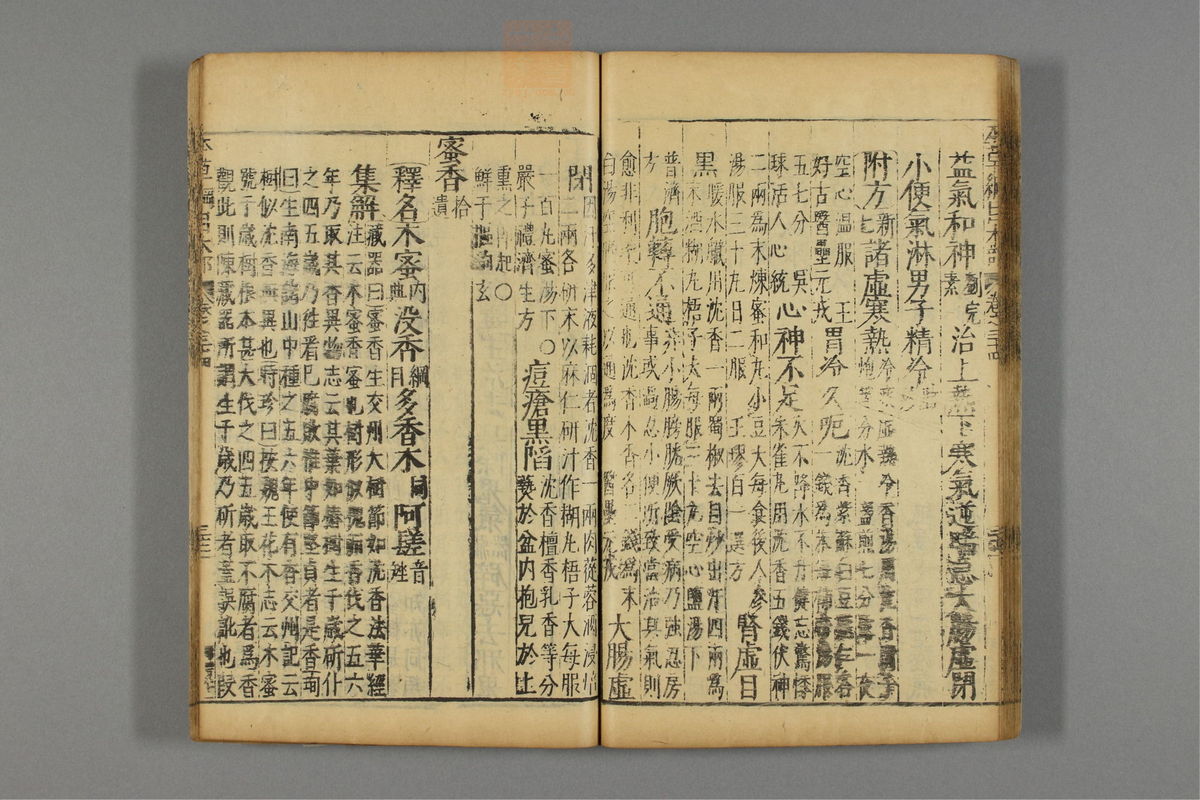 益氣和神劉完素治上熱下寒氣逆喘急大腸虛閉
小便氣淋男子精冷
附方新七諸虛寒熱冷痰虛熱冷香湯用沈香附子
炮等分水一盞煎七分露一夜
空心温服王
好古醫壘元戎胃冷久呃沈香紫蘇白豆蔻各
一錢爲末每柿蔕湯服
五七分吳
球活人心統心神不足火不降水不升健忘驚悸
朱雀丸用沈香五錢伏神
二兩爲末煉蜜和丸小豆大每食後人參
湯服三十丸日二服王璆百一選方腎虛目
黑暖水臟用沈香一兩蜀椒去目炒出汗四兩爲
末酒糊丸梧子大每服三十丸空心鹽湯下
普濟方胞轉不通非小腸膀胱厥陰受病乃強忍房
事或過忍小便所致當治其氣則
愈非利藥可通也沈香木香各二錢爲末
白湯空腹服之以通爲度醫壘元戎大腸虛
閉因汗多津液耗涸者沈香一兩肉蓯蓉酒浸焙
二兩各研末以麻仁研汁作糊丸梧子大每服
一百丸蜜湯下○
嚴子禮濟生方痘瘡黑陷沈香檀香乳香等分
爇於盆内抱兒於上
熏之即起○
鮮于樞鉤玄
蜜香拾遺
釋名木蜜内典没香綱目多香木同阿𦲺音矬
集解藏器曰蜜香生交州大樹節如沈香法華經
注云木蜜香蜜也樹形似槐而香伐之五六
年乃取其香異物志云其葉如椿樹生千歲斫仆
之四五歲乃往看已腐敗惟中節堅貞者是香珣
曰生南海諸山中種之五六年便有香交州記云
樹似沈香無異也時珍曰按魏王花木志云木蜜
號千歲樹根本甚大伐之四五歲取不腐者爲香
觀此則陳藏器所謂生千歲乃斫者蓋誤訛也段